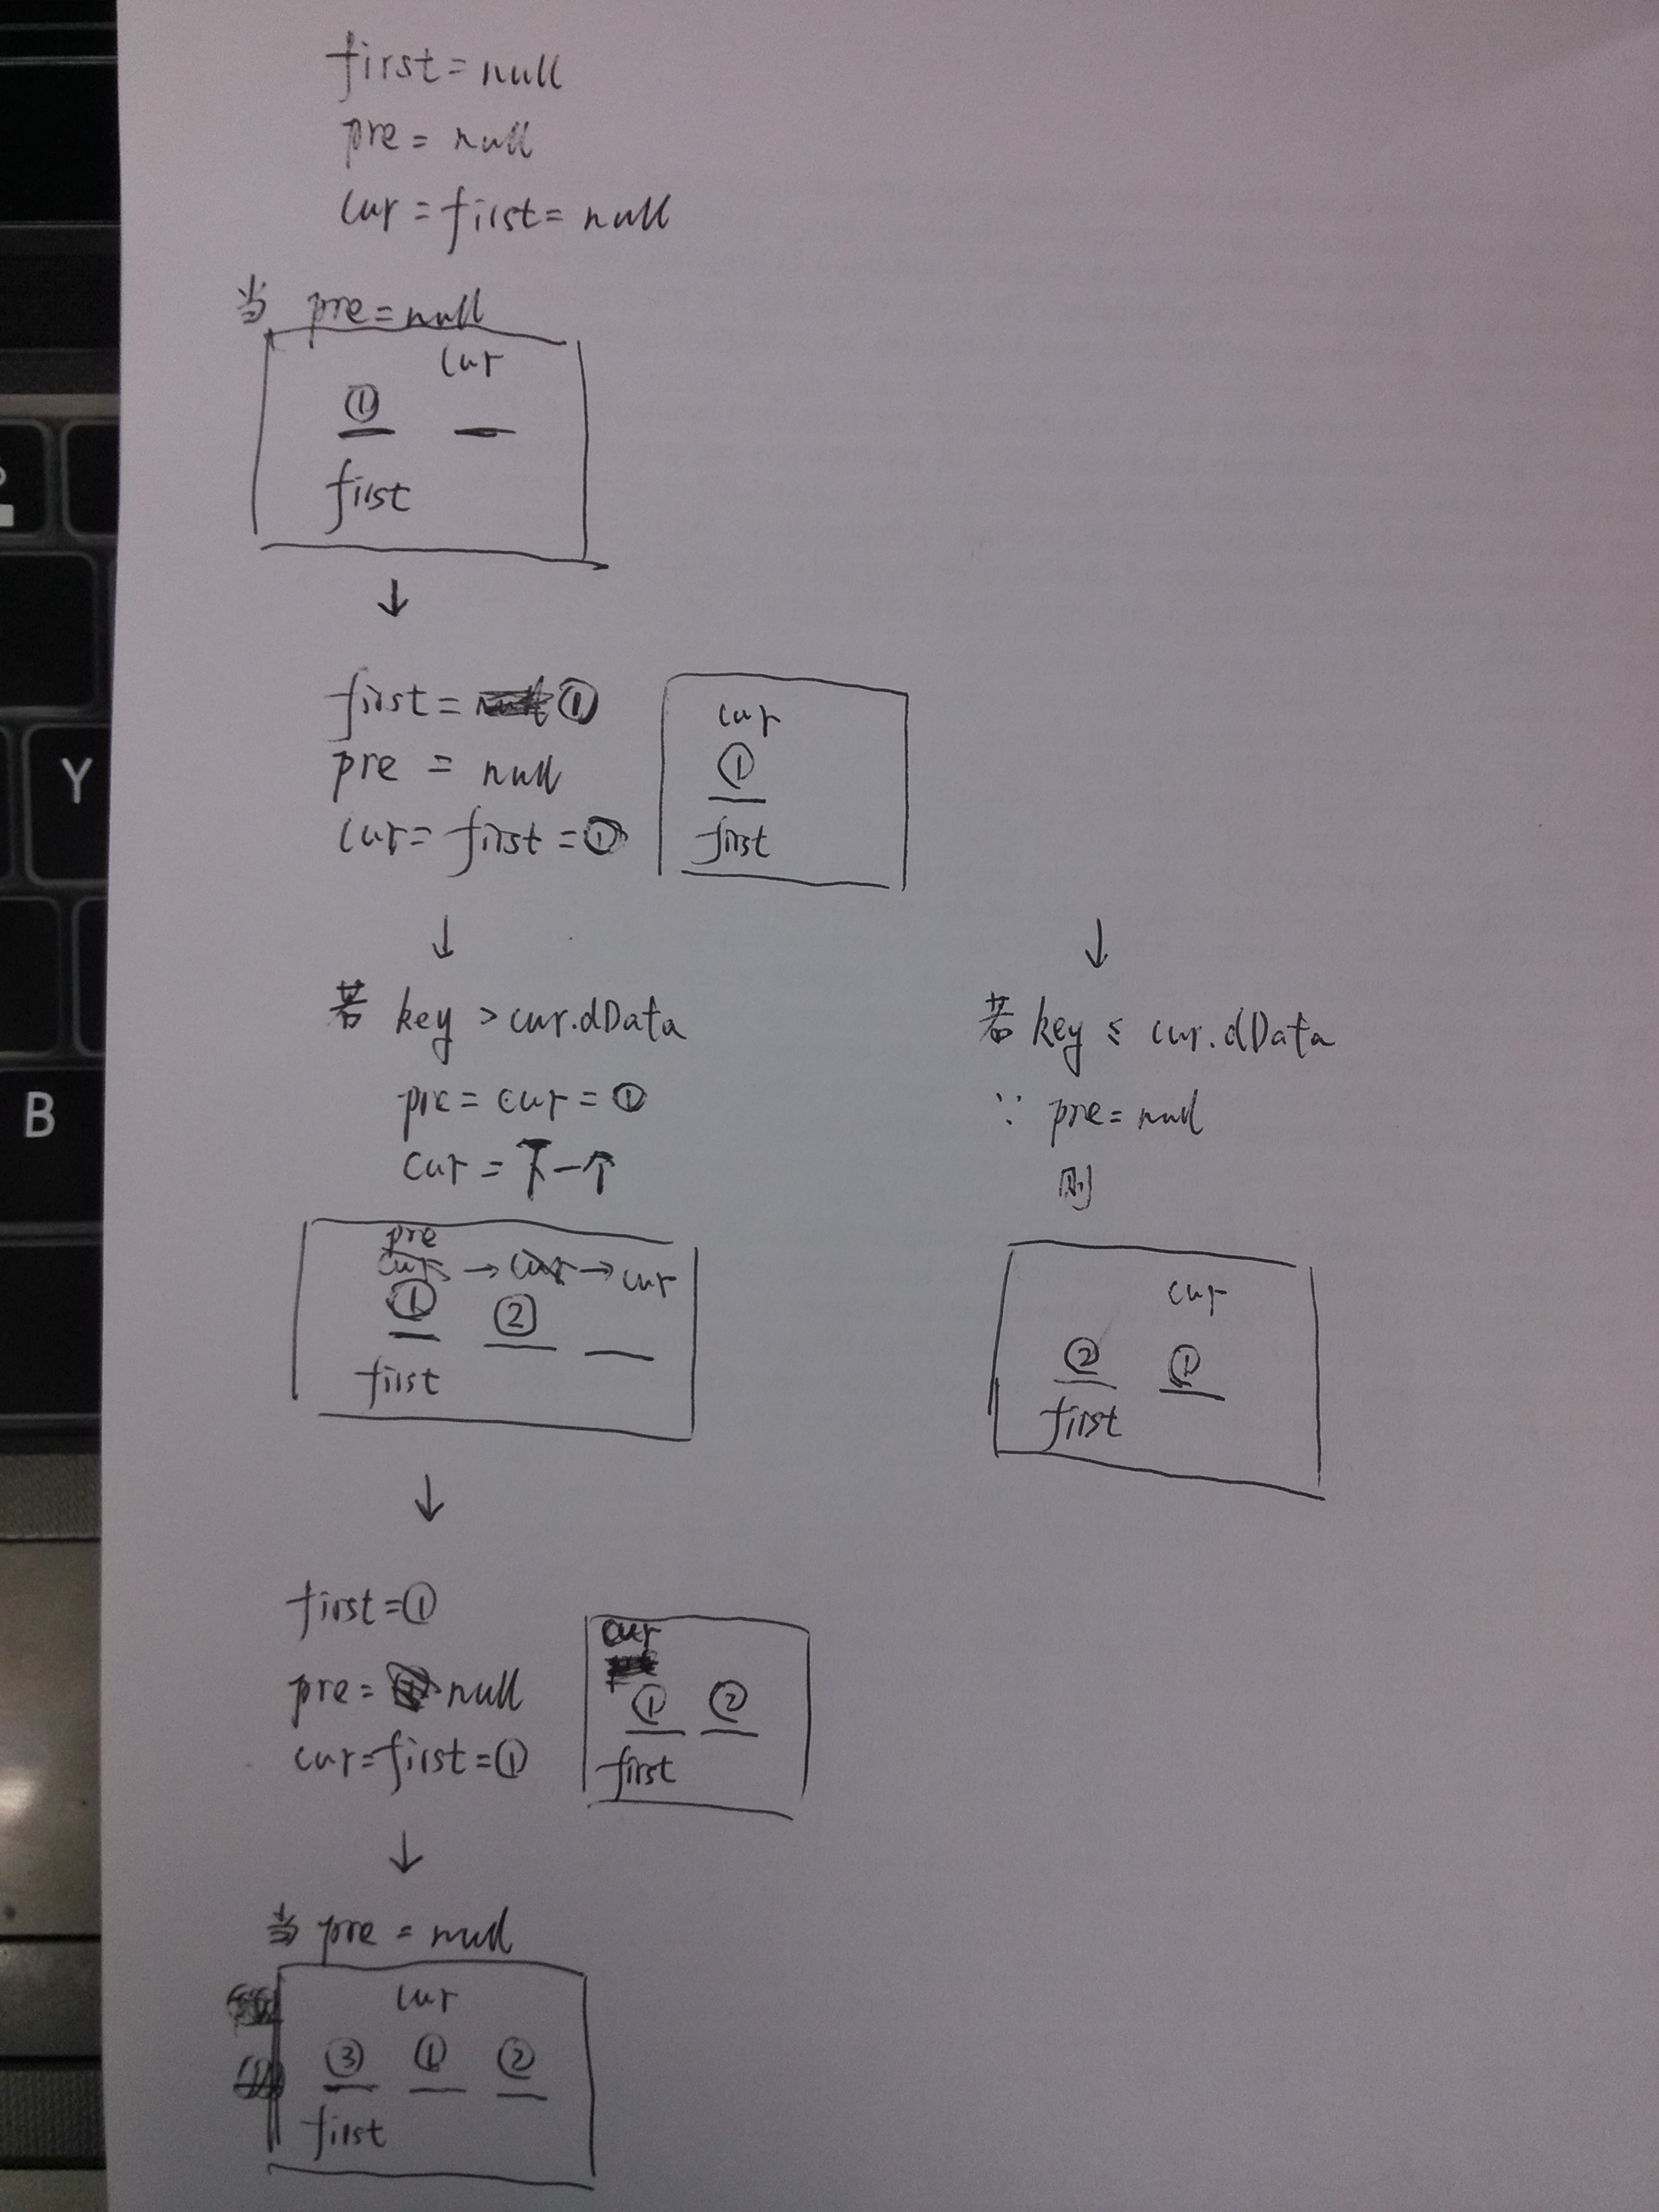 first = null
pre = null
cur = first = null
当 pre = null
cur
①
first
↓
first = ①
pre = null
cur = first = ①
cur
①
first
↓
若 key > cur.dData
pre = cur = ①
cur = 下一个
pre
cur → cur → cur
① ②
first
↓
若 key ≤ cur.dData
∵ pre = null
则
cur
② ①
first
↓
first = ①
pre = null
cur = first = ①
cur
① ②
first
↓
当 pre = null
cur
③ ① ②
first
Y
B